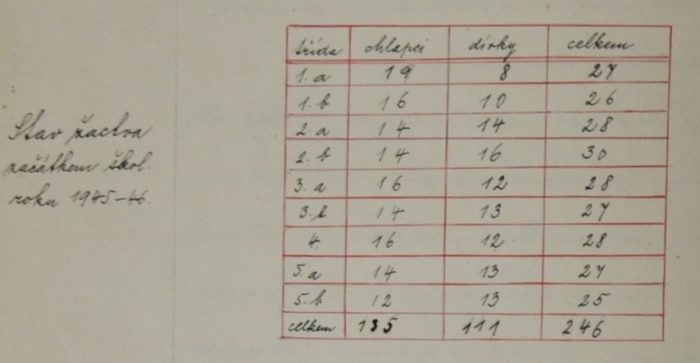 Stav žactva
začátkem škol.
roku 1945-46.
třída chlapci dívky celkem
1.a 19 8 27
1.b 16 10 26
2.a 14 14 28
2.b 14 16 30
3.a 16 12 28
3.b 14 13 27
4. 16 12 28
5.a 14 13 27
5.b 12 13 25
celkem 135 111 246